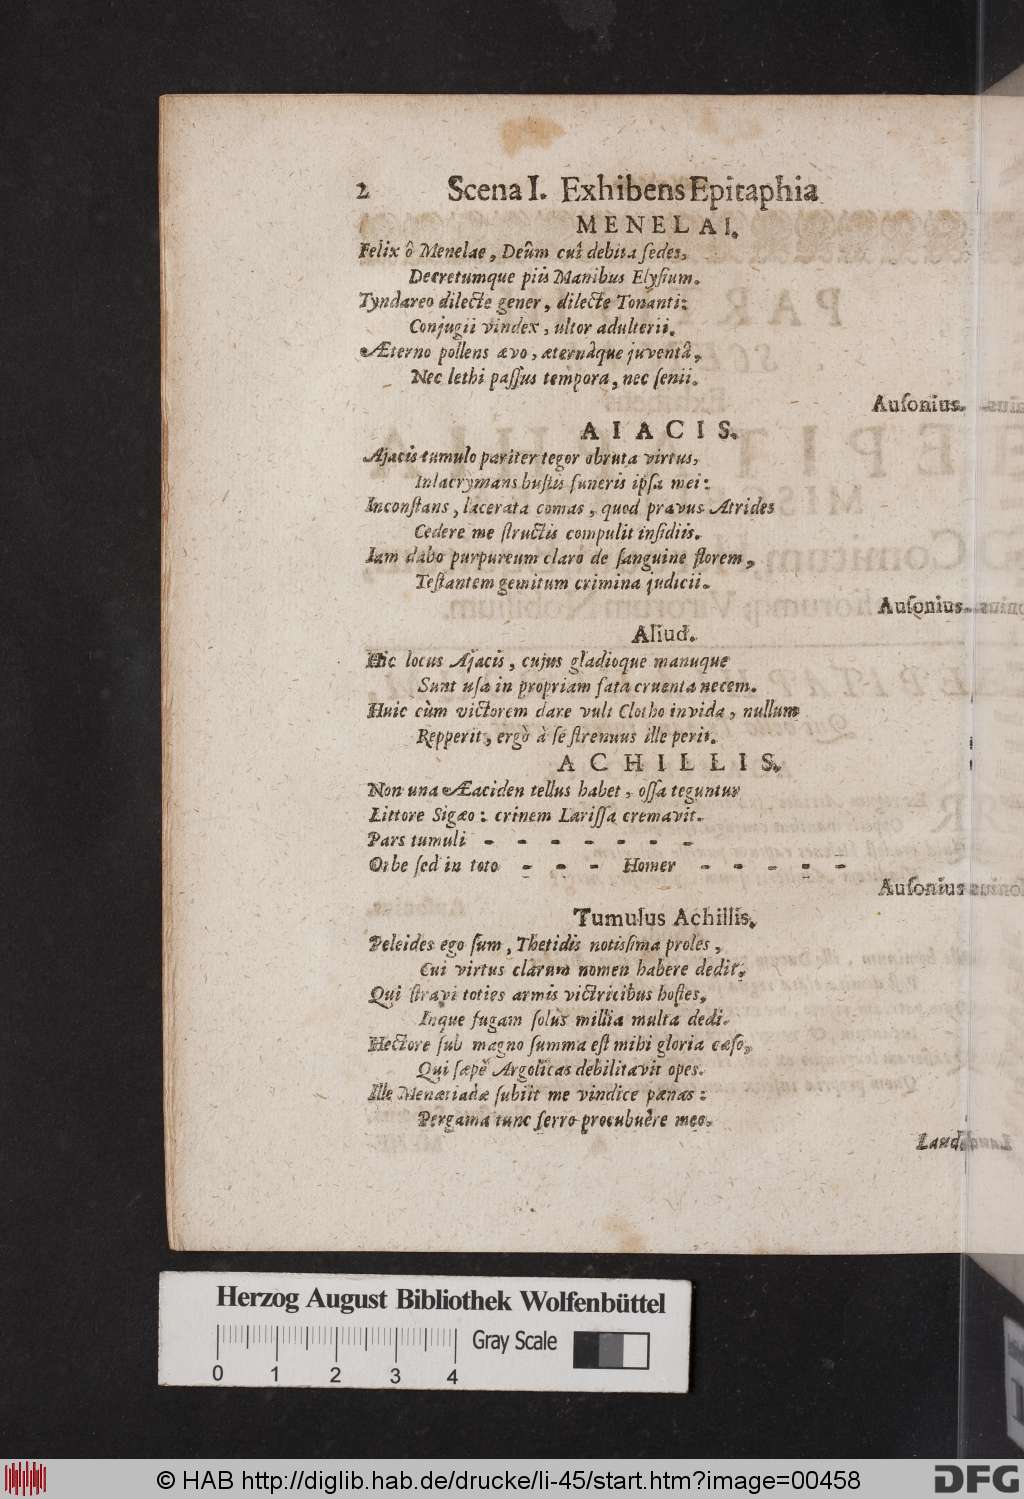 2 Scena I. Exhibens Epitaphia
MENELAI.
Felix ô Menelae, Deûm cui debita sedes,
Decretumque piis Manibus Elysium.
Tyndareo dilecte gener, dilecte Tonanti:
Conjugii vindex, ultor adulterii.
Æterno pollens ævo, æternâque juventâ,
Nec lethi passus tempora, nec senii.
Ausonius.
AIACIS.
Ajacis tumulo pariter tegor obruta virtus,
Inlacrymans bustis funeris ipsa mei:
Inconstans, lacerata comas, quod pravus Atrides
Cedere me structis compulit insidiis.
Iam dabo purpureum claro de sanguine florem,
Testantem gemitum crimina judicii.
Ausonius.
Aliud.
Hic locus Ajacis, cujus gladioque manuque
Sunt usa in propriam fata cruenta necem.
Huic cùm victorem dare vult Clotho invida, nullum
Repperit, ergò à se strenuus ille perit.
ACHILLIS.
Non una Æaciden tellus habet, ossa teguntur
Littore Sigæo: crinem Larissa cremavit.
Pars tumuli - - - - - - -
Orbe sed in toto - - - Homer - - - - -
Ausonius
Tumulus Achillis.
Peleides ego sum, Thetidis notissima proles,
Cui virtus clarum nomen habere dedit.
Qui stravi toties armis victricibus hostes,
Inque fugam solus millia multa dedi.
Hectore sub magno summa est mihi gloria cæso,
Qui sæpè Argolicas debilitavit opes.
Ille Menætiadæ subiit me vindice pænas:
Pergama tunc ferro procubuêre meo.
Laud.
Herzog August Bibliothek Wolfenbüttel
Gray Scale
0 1 2 3 4
© HAB http://diglib.hab.de/drucke/li-45/start.htm?image=00458
DFG